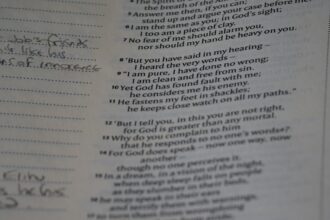 Job's friends
is like his
of innocence
Elihu
the breath of the
5 Answer me then, if you can;
stand up and argue your case before me
6 I am the same as you in God's sight;
I too am a piece of clay.
7 No fear of me should alarm you,
nor should my hand be heavy on you.
8 "But you have said in my hearing —
I heard the very words —
9 "I am pure, I have done no wrong;
I am clean and free from sin.
10 Yet God has found fault with me;
he considers me his enemy.
11 He fastens my feet in shackles;
he keeps close watch on all my paths.'
12 "But I tell you, in this you are not right,
for God is greater than any mortal.
13 Why do you complain to him
that he responds to no one's words?
14 For God does speak — now one way, now
another —
though no one perceives it.
15 In a dream, in a vision of the night,
when deep sleep falls on people
as they slumber in their beds,
16 he may speak in their ears
and terrify them with warnings,
17 to turn them from wrongdoing